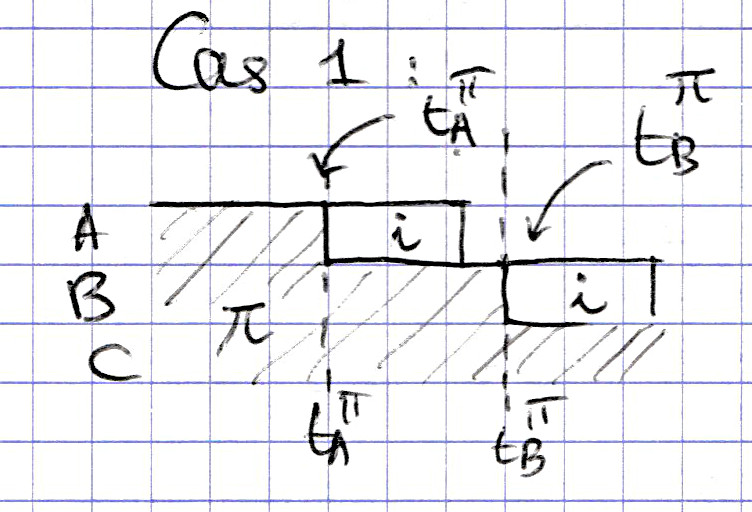 Cas 1 :
t_A^π t_B^π
A i
B i
π
C
t_A^π t_B^π